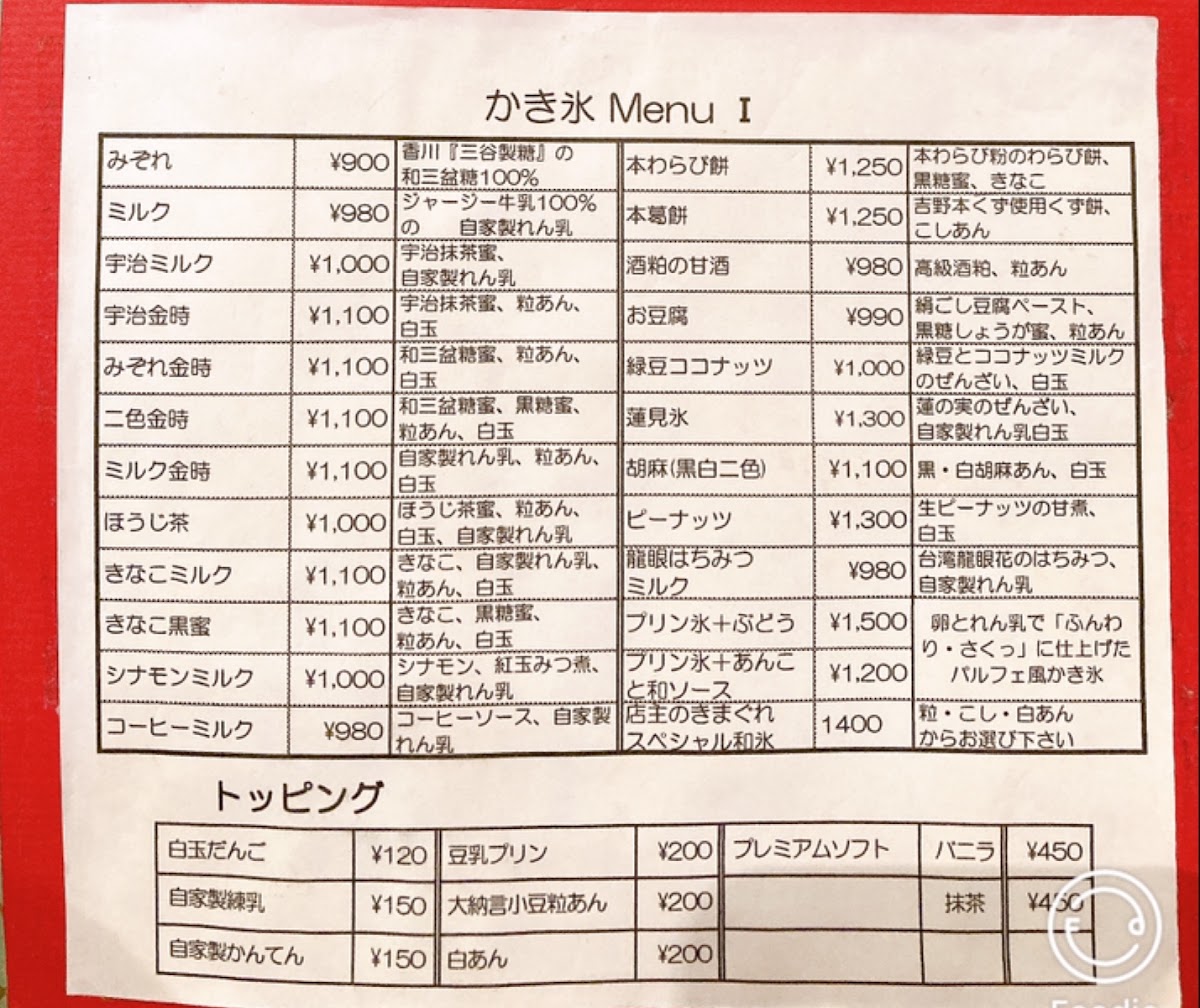 かき氷 Menu Ⅰ
みぞれ ¥900 香川『三谷製糖』の
和三盆糖100%
ミルク ¥980 ジャージー牛乳100%
の 自家製れん乳
宇治ミルク ¥1,000 宇治抹茶蜜、
自家製れん乳
宇治金時 ¥1,100 宇治抹茶蜜、粒あん、
白玉
みぞれ金時 ¥1,100 和三盆糖蜜、粒あん、
白玉
二色金時 ¥1,100 和三盆糖蜜、黒糖蜜、
粒あん、白玉
ミルク金時 ¥1,100 自家製れん乳、粒あん、
白玉
ほうじ茶 ¥1,000 ほうじ茶蜜、粒あん、
白玉、自家製れん乳
きなこミルク ¥1,100 きなこ、自家製れん乳、
粒あん、白玉
きなこ黒蜜 ¥1,100 きなこ、黒糖蜜、
粒あん、白玉
シナモンミルク ¥1,000 シナモン、紅玉みつ煮、
自家製れん乳
コーヒーミルク ¥980 コーヒーソース、自家製
れん乳
本わらび餅 ¥1,250 本わらび粉のわらび餅、
黒糖蜜、きなこ
本葛餅 ¥1,250 吉野本くず使用くず餅、
こしあん
酒粕の甘酒 ¥980 高級酒粕、粒あん
お豆腐 ¥990 絹ごし豆腐ペースト、
黒糖しょうが蜜、粒あん
緑豆ココナッツ ¥1,000 緑豆とココナッツミルク
のぜんざい、白玉
蓮見氷 ¥1,300 蓮の実のぜんざい、
自家製れん乳白玉
胡麻(黒白二色) ¥1,100 黒・白胡麻あん、白玉
ピーナッツ ¥1,300 生ピーナッツの甘煮、
白玉
龍眼はちみつ
ミルク ¥980 台湾龍眼花のはちみつ、
自家製れん乳
プリン氷＋ぶどう ¥1,500
プリン氷＋あんこ
と和ソース ¥1,200
卵とれん乳で「ふんわ
り・さくっ」に仕上げた
パルフェ風かき氷
店主のきまぐれ
スペシャル和氷 1400 粒・こし・白あん
からお選び下さい
トッピング
白玉だんご ¥120 豆乳プリン ¥200 プレミアムソフト バニラ ¥450
自家製練乳 ¥150 大納言小豆粒あん ¥200 抹茶 ¥450
自家製かんてん ¥150 白あん ¥200